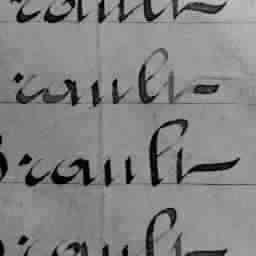 rault
rault
rault
rault